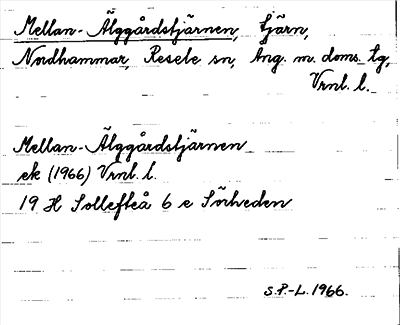 Mellan-Älggårdstjärnen, tjärn,
Nordhammar, Resele sn, Ång. m. doms. tg,
Vrnl. l.
Mellan-Älggårdstjärnen
ek (1966) Vrnl. l.
19 H Sollefteå 6 e Sörheden
S.P.-L. 1966.